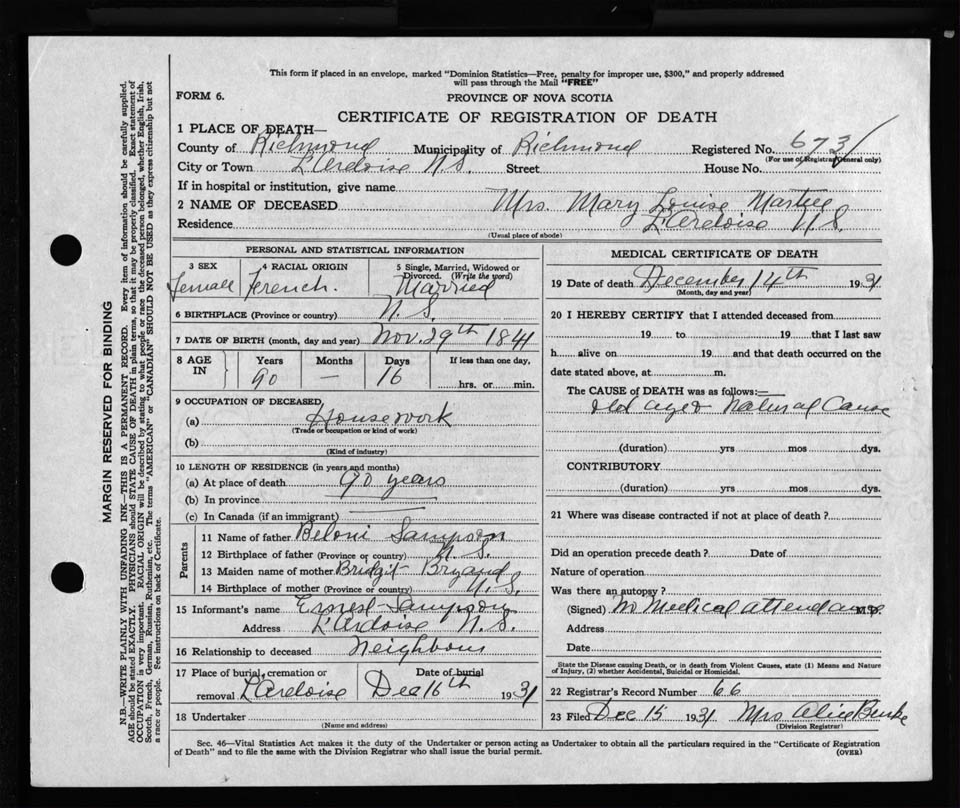 This form if placed in an envelope, marked "Dominion Statistics—Free, penalty for improper use, $300," and properly addressed
will pass through the Mail "FREE"
FORM 6.
PROVINCE OF NOVA SCOTIA
CERTIFICATE OF REGISTRATION OF DEATH
1 PLACE OF DEATH—
County of Richmond Municipality of Richmond Registered No. 673
(For use of Registrar General only)
City or Town L'Ardoise N.S. Street House No.
If in hospital or institution, give name
2 NAME OF DECEASED Mrs. Mary Louise Martell
Residence L'Ardoise N.S.
(Usual place of abode)
PERSONAL AND STATISTICAL INFORMATION
3 SEX 4 RACIAL ORIGIN 5 Single, Married, Widowed or
Divorced. (Write the word)
Female French. Married
6 BIRTHPLACE (Province or country) N.S.
7 DATE OF BIRTH (month, day and year) Nov. 29th 1841
8 AGE IN Years Months Days If less than one day,
90 — 16 hrs. or min.
9 OCCUPATION OF DECEASED
(a) House work
(Trade or occupation or kind of work)
(b)
(Kind of industry)
10 LENGTH OF RESIDENCE (in years and months)
(a) At place of death 90 years
(b) In province
(c) In Canada (if an immigrant)
Parents
11 Name of father Beloni Sampson
12 Birthplace of father (Province or country) N.S.
13 Maiden name of mother Bridgit
14 Birthplace of mother (Province or country) N.S.
15 Informant's name Ernest Sampson
Address L'Ardoise N.S.
16 Relationship to deceased Neighbour
17 Place of burial, cremation or Date of burial
removal L'Ardoise Dec 16th 1931
18 Undertaker
(Name and address)
MEDICAL CERTIFICATE OF DEATH
19 Date of death December 14th 1931
(Month, day and year)
20 I HEREBY CERTIFY that I attended deceased from
19 to 19 that I last saw
h alive on 19 and that death occurred on the
date stated above, at m.
The CAUSE of DEATH was as follows:—
Old age Natural Cause
(duration) yrs mos dys.
CONTRIBUTORY
(duration) yrs. mos. dys.
21 Where was disease contracted if not at place of death?
Did an operation precede death? Date of
Nature of operation
Was there an autopsy?
(Signed) No Medical attendance M.D.
Address
Date
State the Disease causing Death, or in death from Violent Causes, state (1) Means and Nature
of Injury, (2) whether Accidental, Suicidal or Homicidal.
22 Registrar's Record Number 66
23 Filed Dec 15 1931 Mrs Alice Burke
(Division Registrar)
Sec. 46—Vital Statistics Act makes it the duty of the Undertaker or person acting as Undertaker to obtain all the particulars required in the "Certificate of Registration
of Death" and to file the same with the Division Registrar who shall issue the burial permit. (OVER)
MARGIN RESERVED FOR BINDING
N.B.—WRITE PLAINLY WITH UNFADING INK—THIS IS A PERMANENT RECORD. Every item of information should be carefully supplied.
AGE should be stated EXACTLY. PHYSICIANS should STATE CAUSE OF DEATH in plain terms, so that it may be properly classified. Exact statement of
OCCUPATION is very important. RACIAL ORIGIN will be described by stating to what people or race the deceased person belonged, whether English, Irish,
Scotch, French, German, Russian, Ruthenian, etc. The terms "AMERICAN" or "CANADIAN" SHOULD NOT BE USED as they express citizenship but not
a race or people. See instructions on back of Certificate.